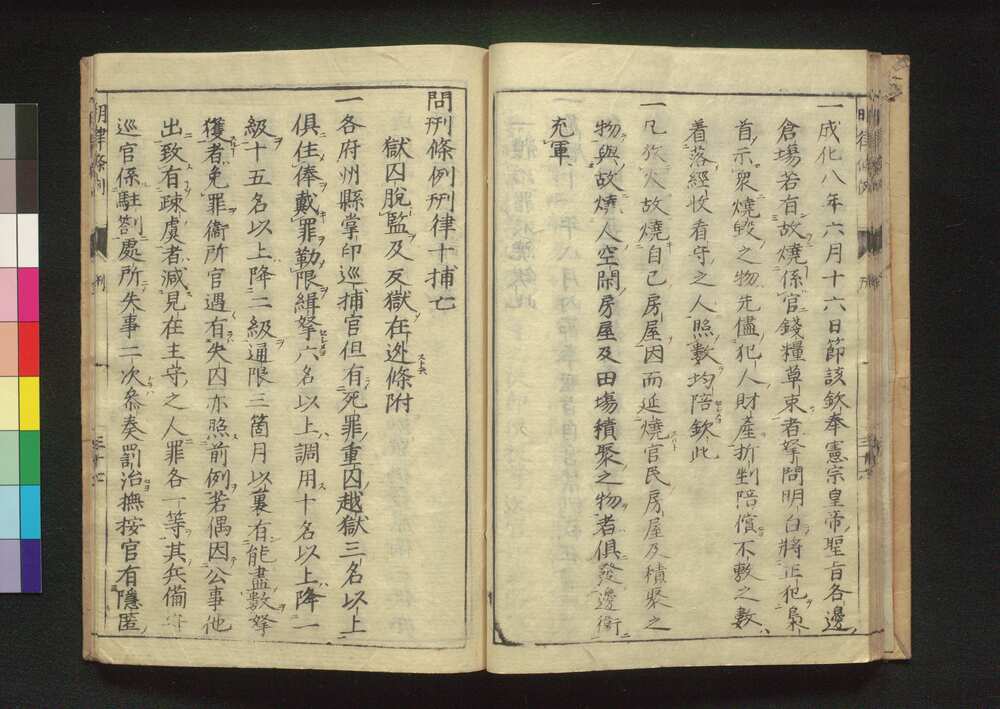 一成化八年六月十六日節該欽奉憲宗皇帝聖旨各邊
倉場若有故燒係官錢糧草束者拏問明白將正犯梟
首示衆燒毀之物先儘犯人財產折剉陪償不敷之數
着落經收看守之人照數均陪欽此
一凡放火故燒自己房屋因而延燒官民房屋及積聚之
物與故燒人空閑房屋及田場積聚之物者俱發邊衞
充軍
問刑條例刑律十捕亡
獄囚脫監及反獄在逃條附
一各府州縣掌印巡捕官但有死罪重囚越獄三名以上
俱住俸戴罪勒限緝拏六名以上調用十名以上降一
級十五名以上降二級通限三箇月以裏有能盡數拏
獲者免罪衞所官遇有失內亦照前例若偶因公事他
出致有疎虞者減見在主守之人罪各一等其兵備
巡官係駐劄處所失事二次叅奏罰治撫按官有隱匿
明律條例
刑
三十七